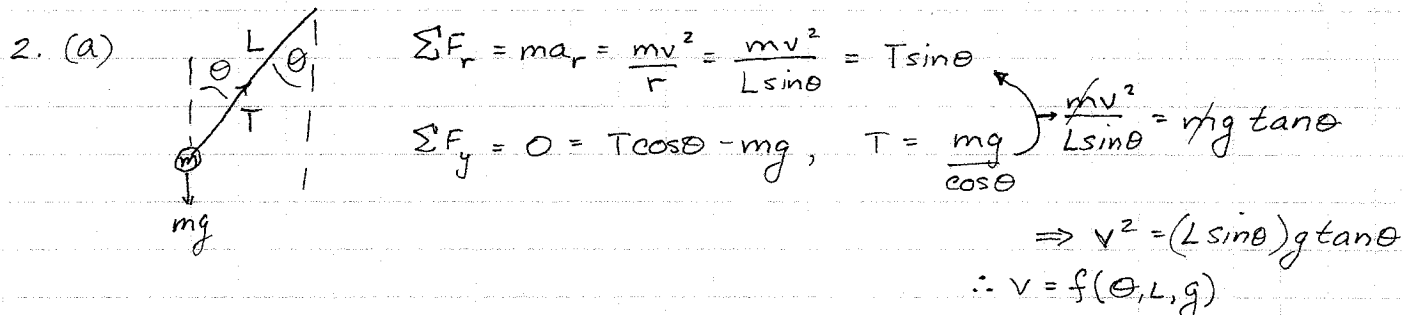 2. (a) L θ θ T m mg
ΣF_r = ma_r = mv²/r = mv²/(Lsinθ) = Tsinθ
ΣF_y = 0 = Tcosθ - mg, T = mg/cosθ → mv²/(Lsinθ) = mg tanθ
⇒ v² = (Lsinθ)g tanθ
∴ v = f(θ, L, g)